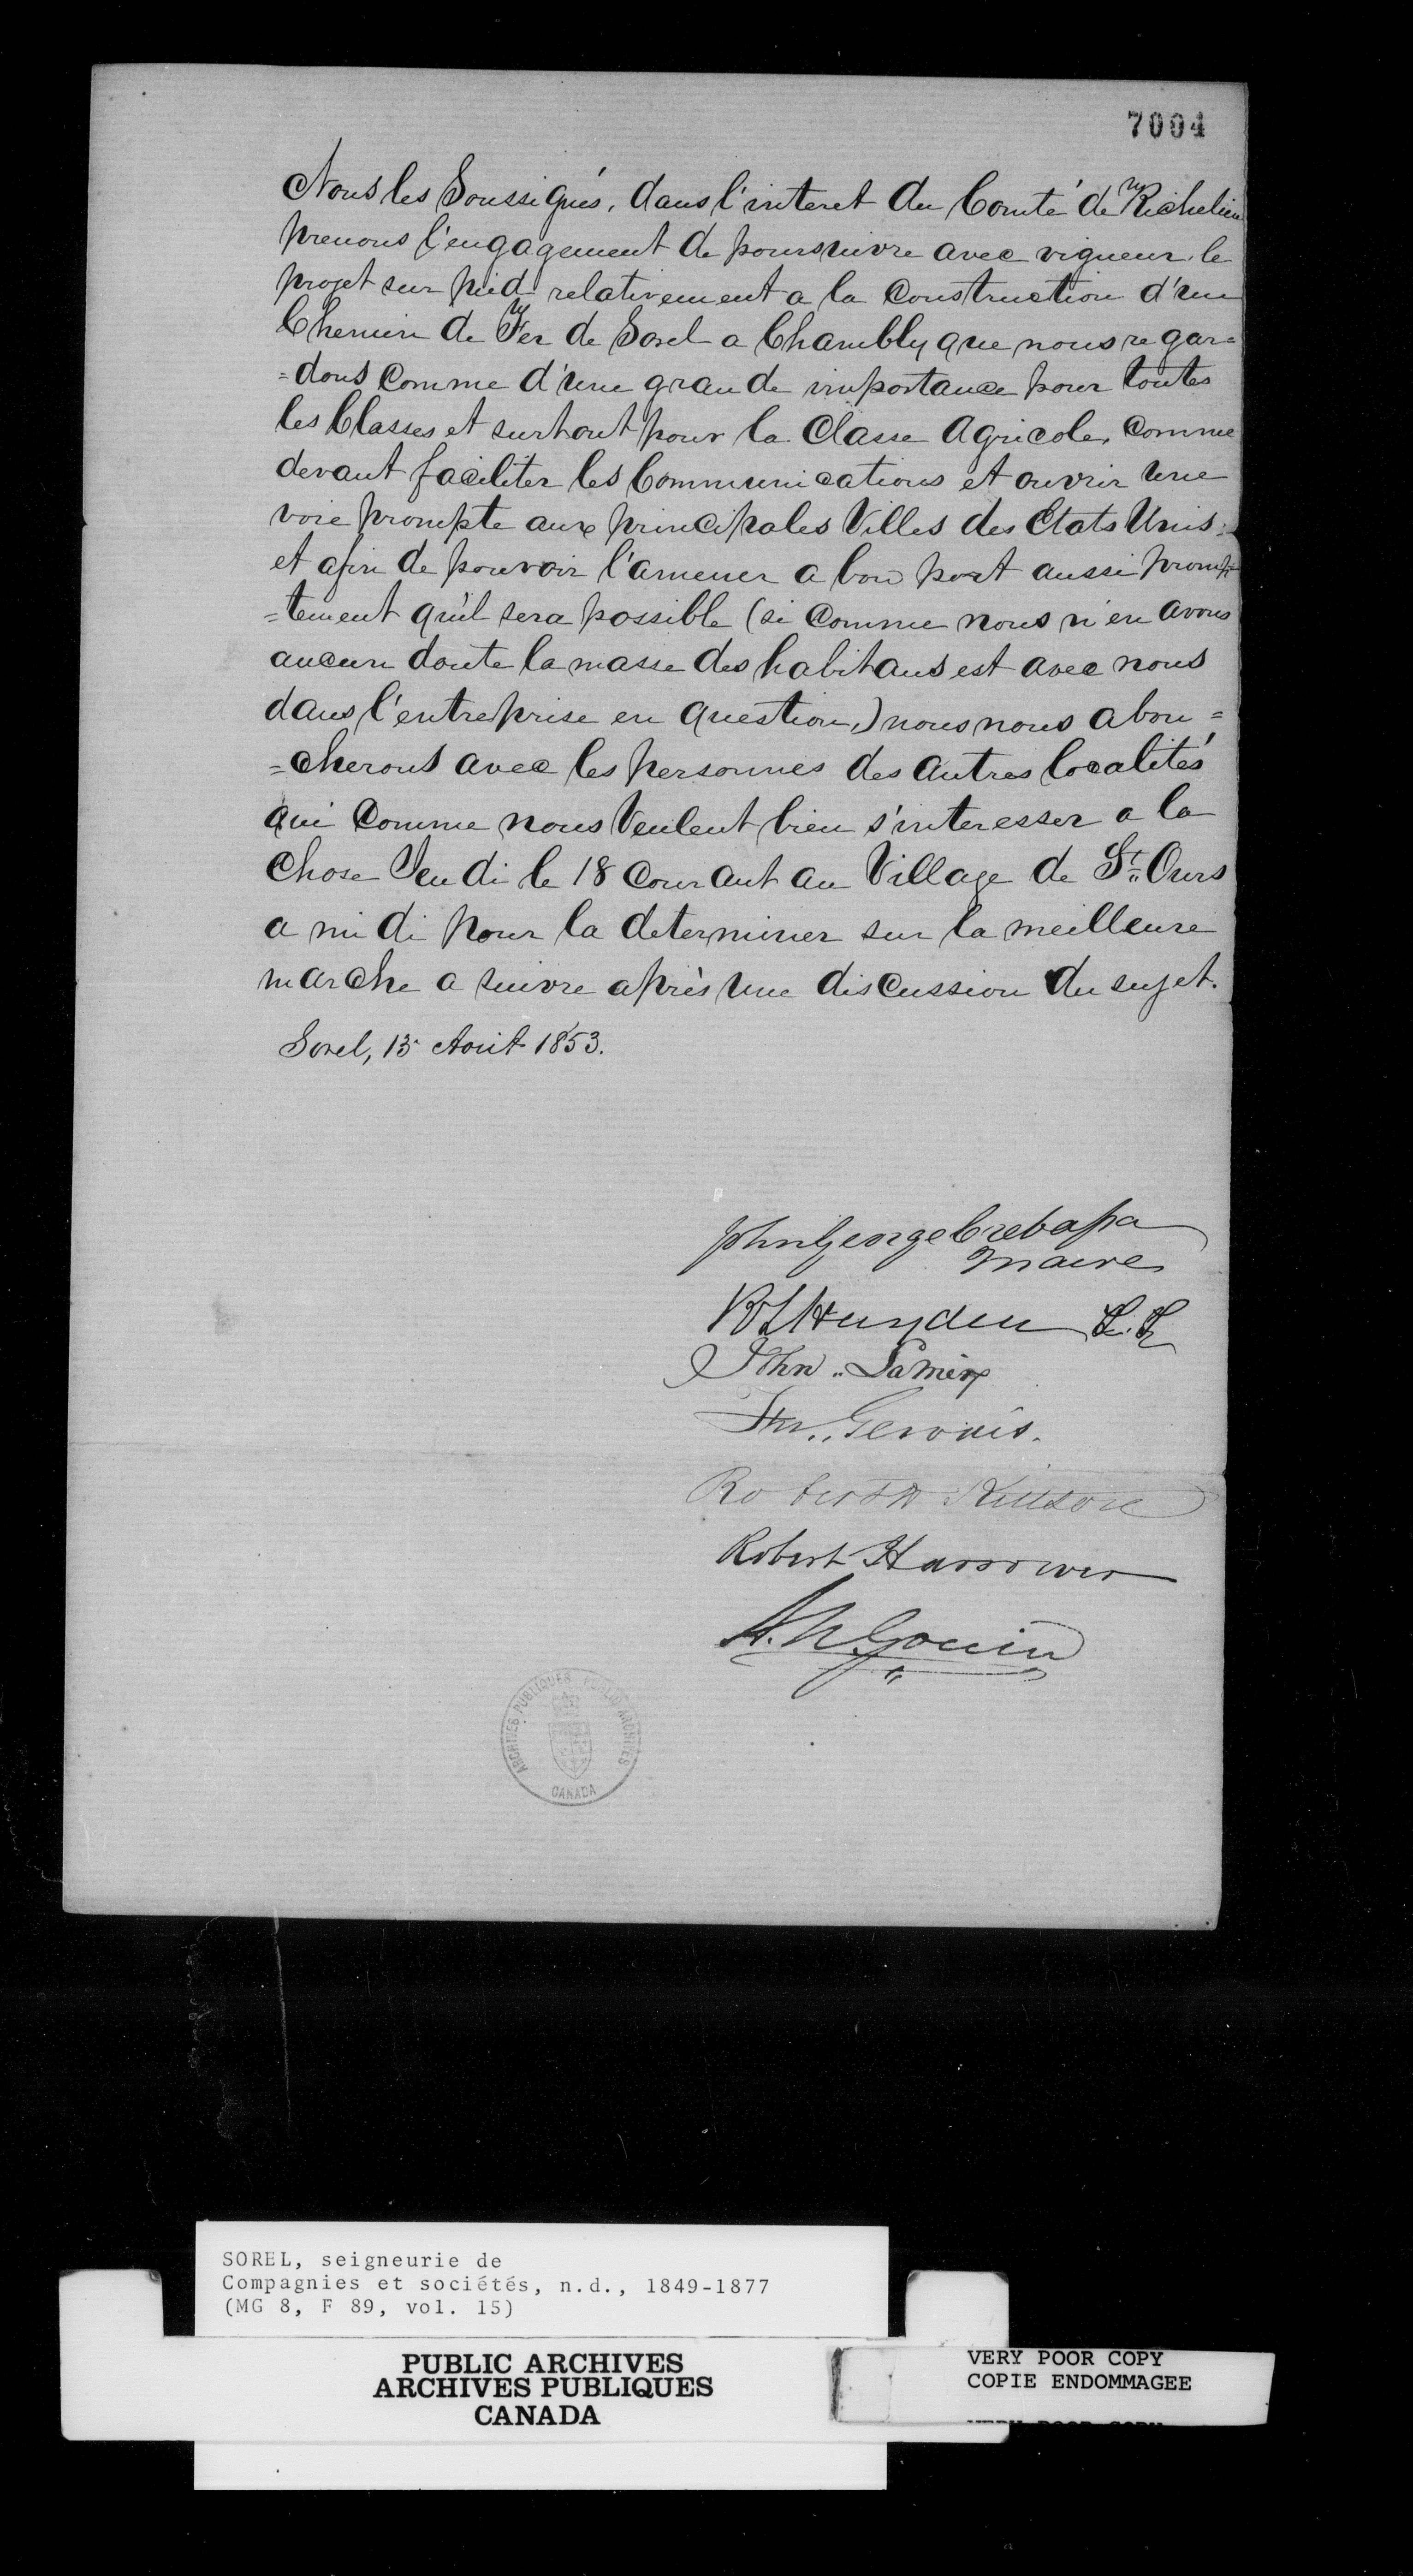 7004
Nous les Soussignés, dans l'interet du Comté de Richelieu
prenons l'engagement de poursuivre avec vigueur le
projet sur pied relativement a la Construction d'un
Chemin de Fer de Sorel a Chambly que nous regar=
=dons Comme d'une grande importance pour toutes
les Classes et surtout pour la Classe Agricole, Comme
devant faciliter les Communications et ouvrir une
voie prompte aux principales Villes des Etats Unis;
et afin de pouvoir l'amener a bon port aussi promp=
=tement qu'il sera possible (si Comme nous n'en avons
aucun doute la masse des habitans est avec nous
dans l'entreprise en question,) nous nous abou=
=cherons avec les personnes des autres localités
qui Comme nous Veulent bien s'interesser a la
Chose Jeudi le 18 Courant au Village de St. Ours
a midi pour la determiner sur la meilleure
marche a suivre après une discussion du sujet.
Sorel, 13 Août 1853.
John George Crebassa
Maire
John Lamère
Gervais.
Robert Kittson
Robert Harrower
A. N. Gouin
ARCHIVES PUBLIQUES PUBLIC ARCHIVES
CANADA
SOREL, seigneurie de
Compagnies et sociétés, n.d., 1849-1877
(MG 8, F 89, vol. 15)
PUBLIC ARCHIVES
ARCHIVES PUBLIQUES
CANADA
VERY POOR COPY
COPIE ENDOMMAGEE
VERY POOR COPY